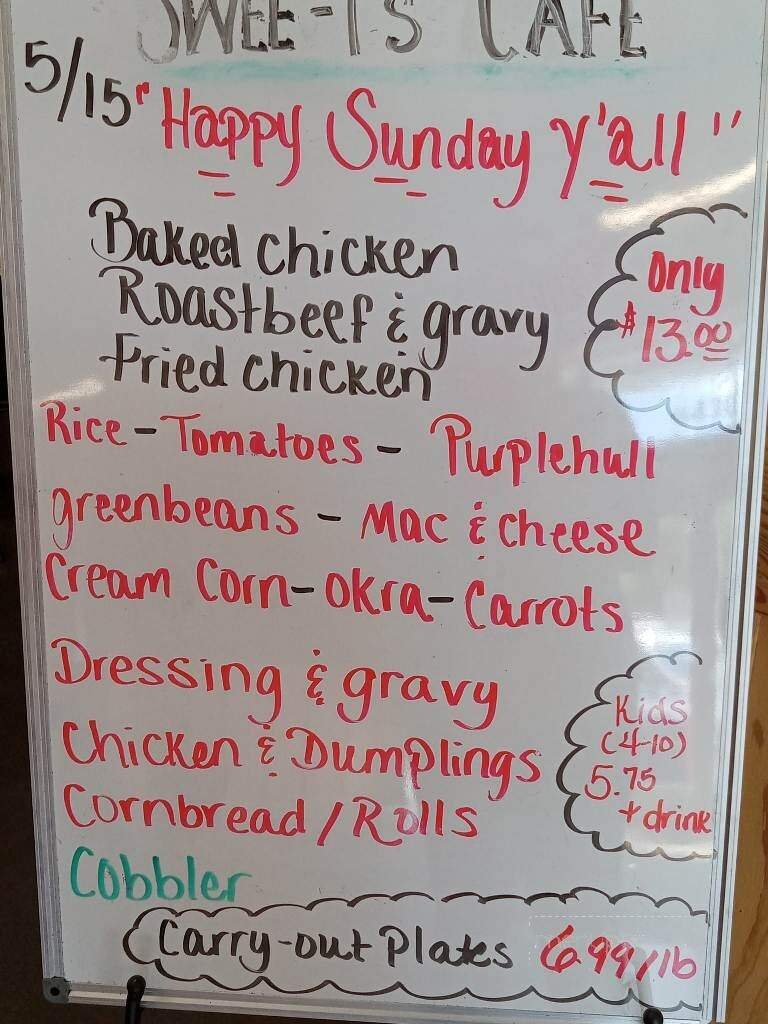 SWEE-T'S CAFE
5/15 "Happy Sunday Y'all"
Baked chicken
Roastbeef & gravy
Fried chicken
only
$13.00
Rice - Tomatoes - Purplehull
greenbeans - Mac & cheese
Cream Corn - okra - Carrots
Dressing & gravy
Chicken & Dumplings
Cornbread / Rolls
Kids
(4-10)
5.75
+ drink
Cobbler
Carry-out Plates 6.99/lb